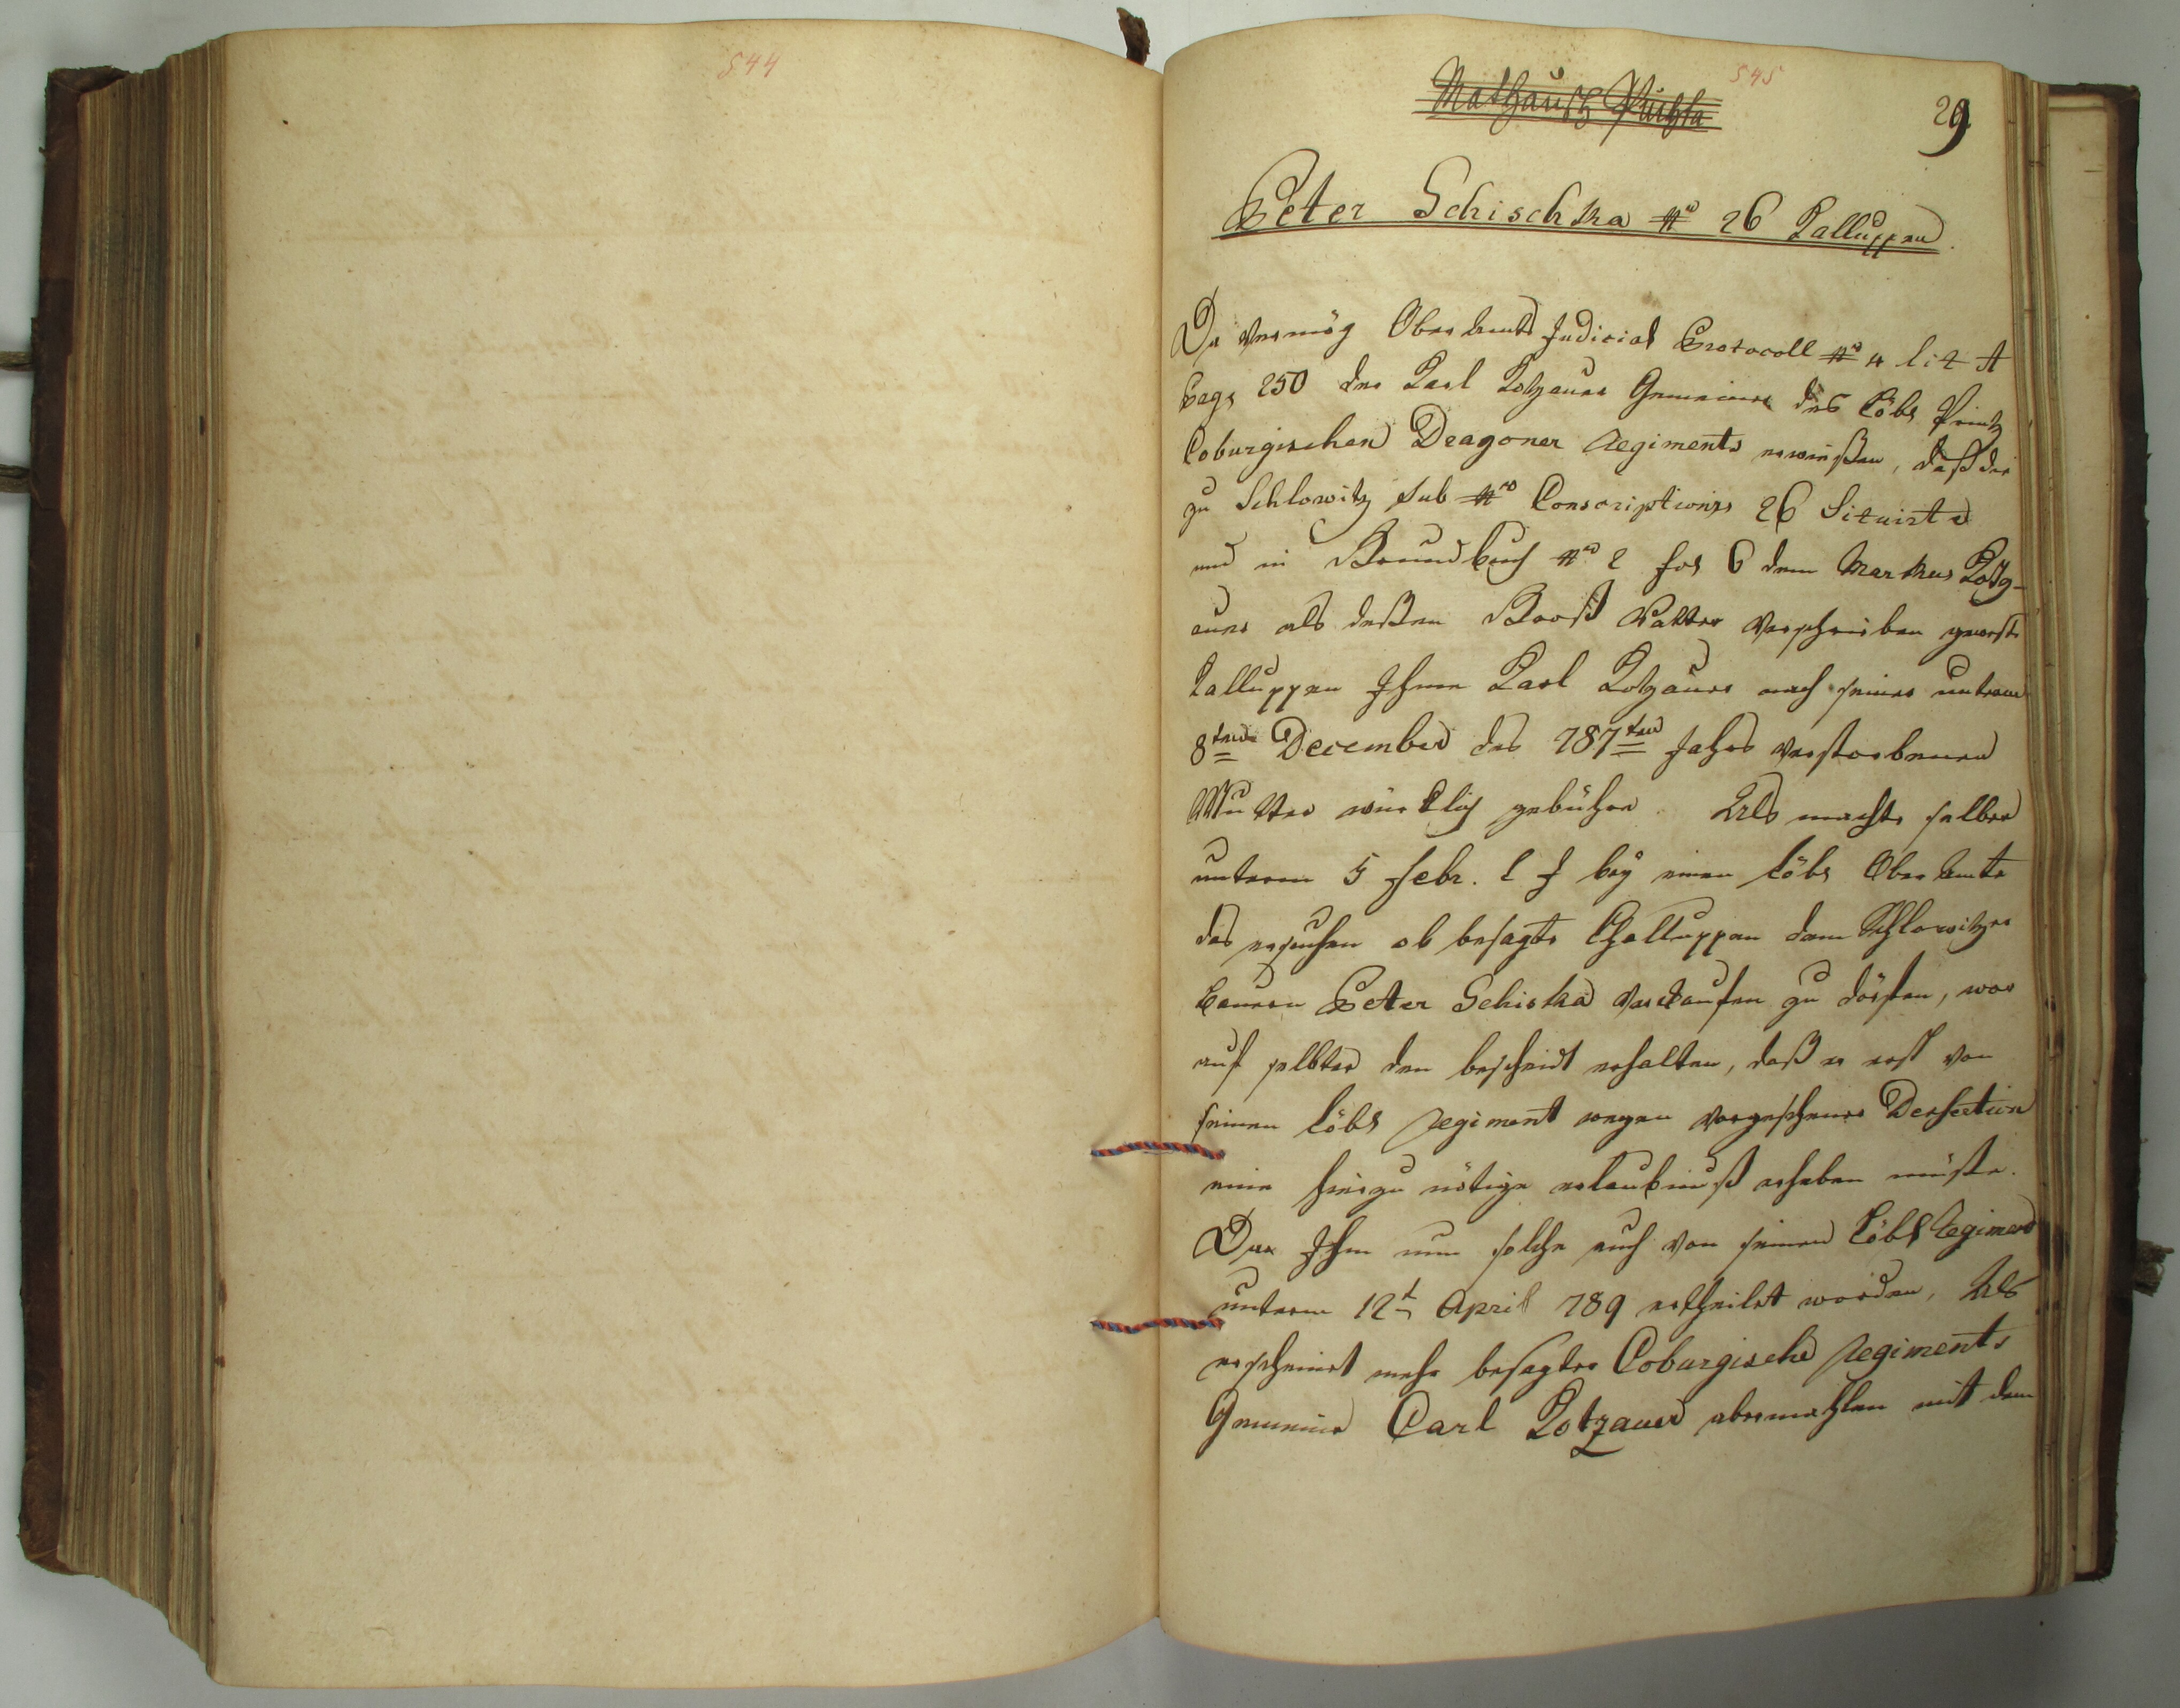 544
545
29
Mathausch Puchta
Peter Schischka No 26 Kalluppen.
Da vermög Oberamts Judicial Protocoll No 4 lit A
Pag 250 der Karl Kotzauer Gemeiner des Löbl Printz
Coburgischen Dragoner Regiments erwießen, daß die
zu Schlowitz sub No Conscriptionis 26 Situirte
und in Grundbuch No 2 fol 6 dem Markus Kotz-
auer als deßen Groß Vatter Verschrieben geweste
Kalluppen Ihme Karl Kotzauer nach seiner unterm
8ten December des 787ten Jahrs verstorbenen
Mutter würklich gebühre. Als machte selber
unterm 5 Febr. l J bey einen Löbl Oberamte
das ersuchen ob besagte Challuppen dem Schlowitzer
Bauern Peter Schiska verkaufen zu dörfen, wor
auf selbter den bescheidt erhalten, daß er erst von
seinen Löbl Regiment wegen vorgesehener Desertion
eine hierzu nötige erlaubnuß erheben müste.
Da Ihm nun solche auch von seinen Löbl Regiment
unterm 12t April 789 ertheilet worden, Als
erscheinet mehr besagter Coburgische Regiments
Gemeine Carl Kotzauer abermahlen mit dem